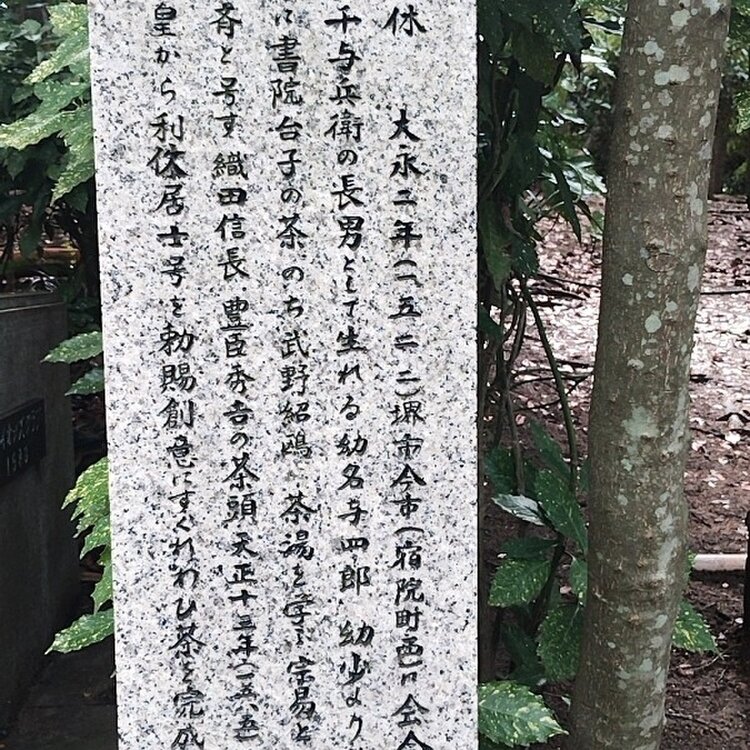 休 大永二年(一五二二)堺市今市(宿院町西)に会合
千与兵衛の長男として生れる幼名与四郎 幼少より
に書院台子の茶 のち武野紹鴎に茶湯を学ぶ宗易と
斉と号す 織田信長 豊臣秀吉の茶頭 天正十三年(一五八五)
皇から利休居士号を勅賜創意にすぐれわび茶を完成
1983